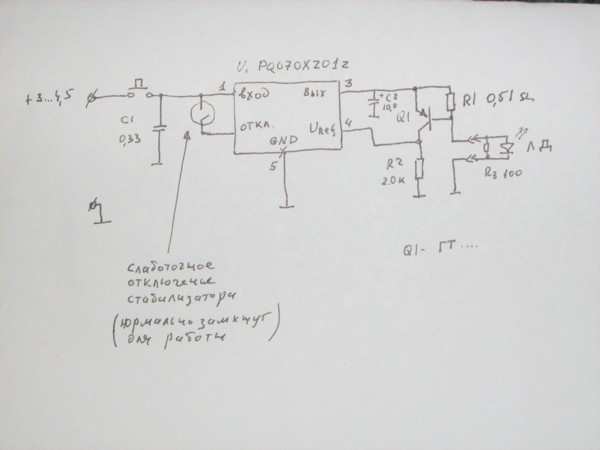 U1 PQ070XZ01Z
+3...4,5
1
ВХОД
ВЫХ
3
+C2
10,0
Q1
R1 0,51 Ω
C1
0,33
ОТКЛ.
Uref
4
GND
5
R2
2.0к
R3 100
ЛД
Q1- ГТ....
слаботочное
отключение
стабилизатора
(нормально замкнут
для работы)